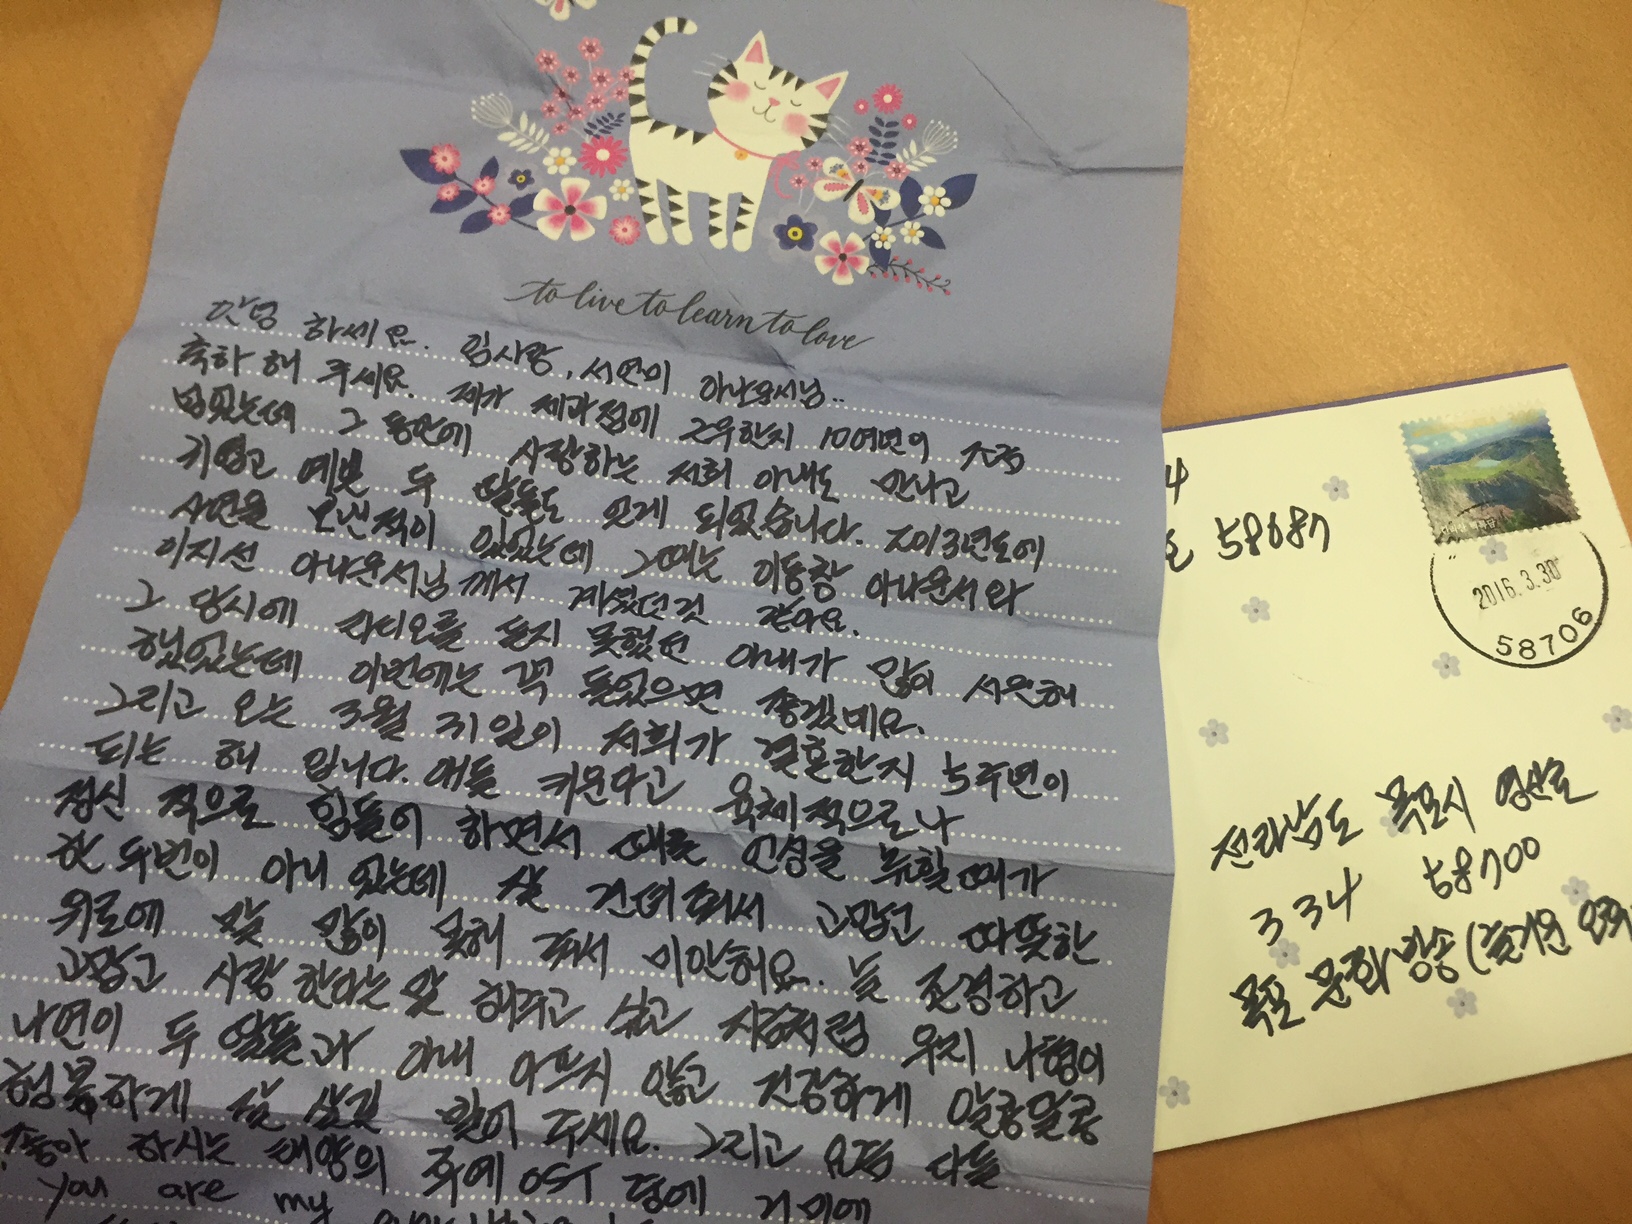 to live to learn to love
안녕 하세요. 김사랑, 서연미 아나운서님..
축하 해 주세요. 제가 제과점에 근무한지 10여년이 조금
넘었는데 그 동안에 사랑하는 저희 아내도 만나고
귀엽고 예쁜 두 딸들도 있게 되었습니다. 2013년도에
사연을 보낸적이 있었는데 그때는 이동향 아나운서와
이지선 아나운서님께서 계셨던것 같아요.
그 당시에 라디오를 듣지 못했던 아내가 많이 서운해
했었는데 이번에는 꼭 들었으면 좋겠네요.
그리고 오는 3월 31일이 저희가 결혼한지 5주년이
되는 해 입니다. 애들 키운다고 육체적으로나
정신 적으로 힘들어 하면서 때론 인상을 부릴때가
한 두번이 아니 었는데 잘 견뎌줘서 고맙단 따뜻한
위로에 말 많이 못해 줘서 미안해요. 늘 존경하고
고맙고 사랑 한다는 말 해주고 싶고 지금처럼 우리 나형이
나연이 두 딸들과 아내 아프지 않고 건강하게 알콩달콩
행복하게 잘 살길 빌어 주세요. 그리고 요즘 다들
좋아 하시는 태양의 후예 OST 중에 거미에
you are my
4
58087
2016.3.30
58706
전라남도 목포시 영산로
334 58700
목포 문화 방송 (즐거운 오후